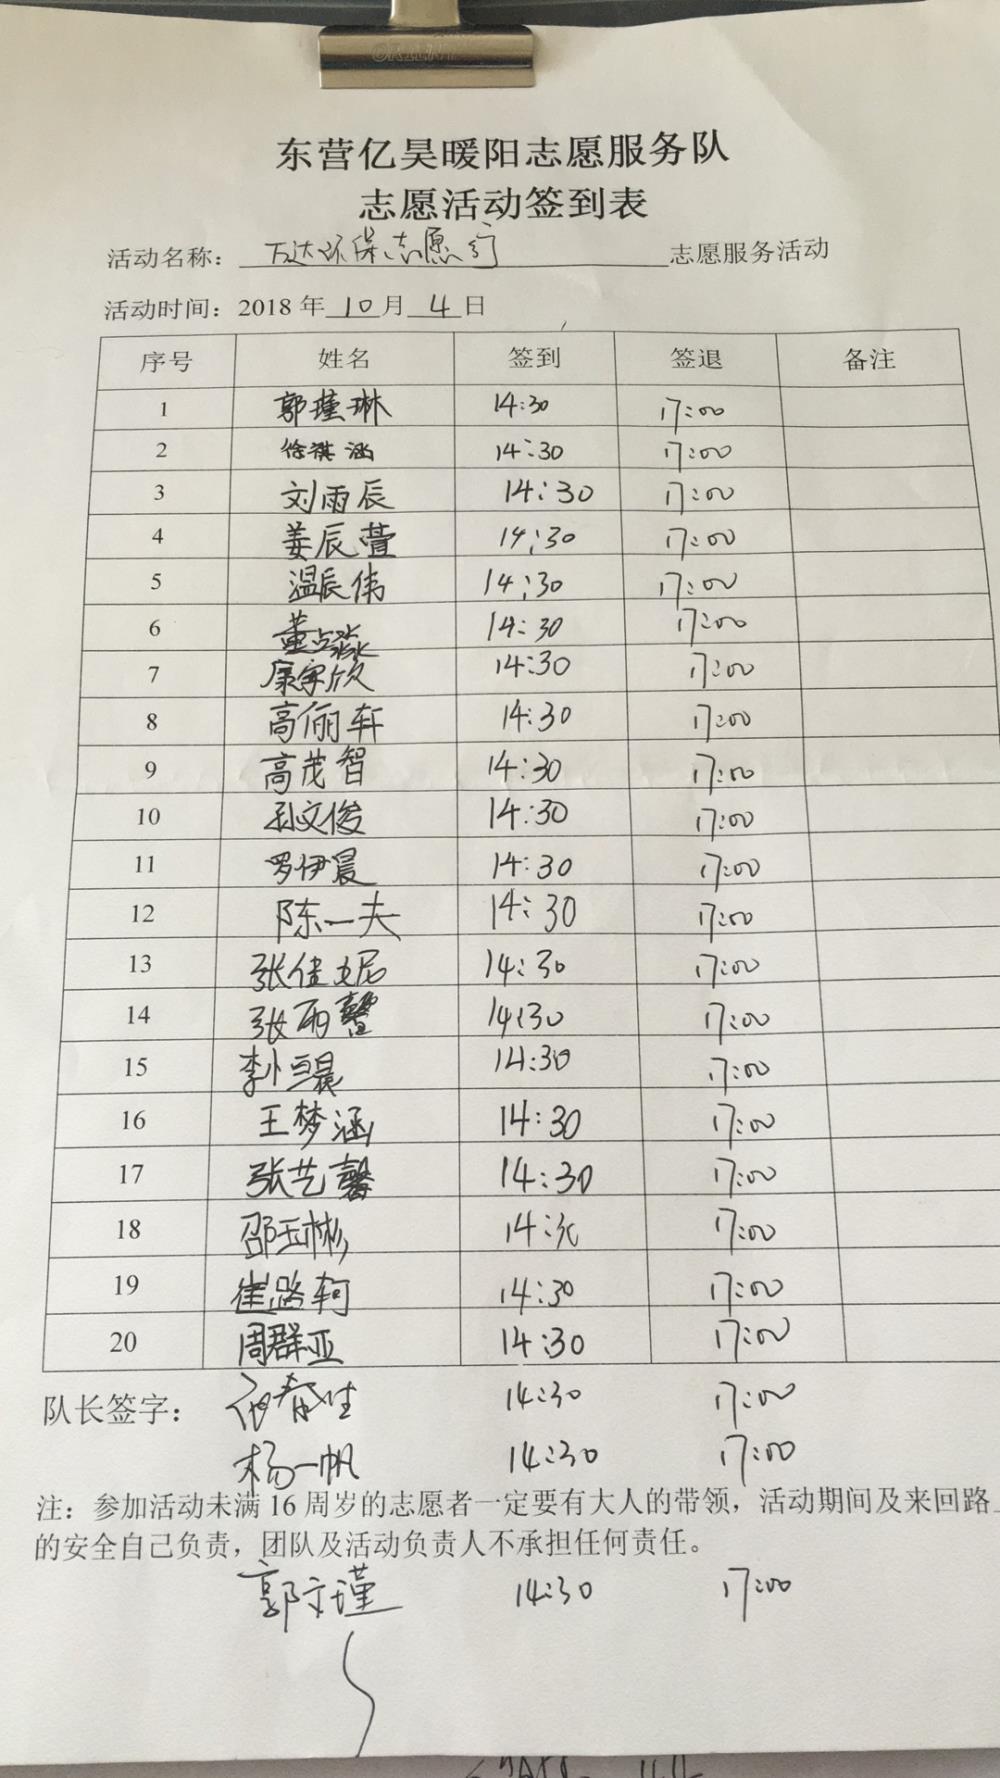 东营亿昊暖阳志愿服务队
志愿活动签到表
活动名称：万达环保志愿行志愿服务活动
活动时间：2018年10月4日
序号 姓名 签到 签退 备注
1 郭瑾琳 14:30 17:00
2 徐祺涵 14:30 17:00
3 刘雨辰 14:30 17:00
4 姜辰萱 14:30 17:00
5 温辰伟 14:30 17:00
6 董占淼 14:30 17:00
7 康家欣 14:30 17:00
8 高俪轩 14:30 17:00
9 高茂智 14:30 17:00
10 孙文俊 14:30 17:00
11 罗伊晨 14:30 17:00
12 陈一夫 14:30 17:00
13 张佳妮 14:30 17:00
14 张雨馨 14:30 17:00
15 14:30 17:00
16 王梦涵 14:30 17:00
17 张艺馨 14:30 17:00
18 邵玉彬 14:30 17:00
19 崔路轲 14:30 17:00
20 周群亚 14:30 17:00
队长签字： 14:30 17:00
杨一帆 14:30 17:00
注：参加活动未满16周岁的志愿者一定要有大人的带领，活动期间及来回路上
的安全自己负责，团队及活动负责人不承担任何责任。
郭文瑾 14:30 17:00